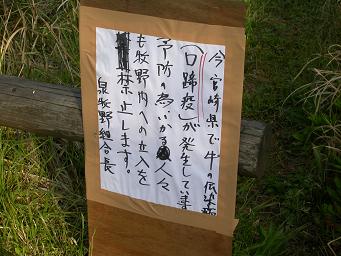 今宮崎県で牛の伝染病
(口蹄疫)が発生していま
予防の為いかる人々
も牧野内への立入を
禁止します。
泉牧野組合長